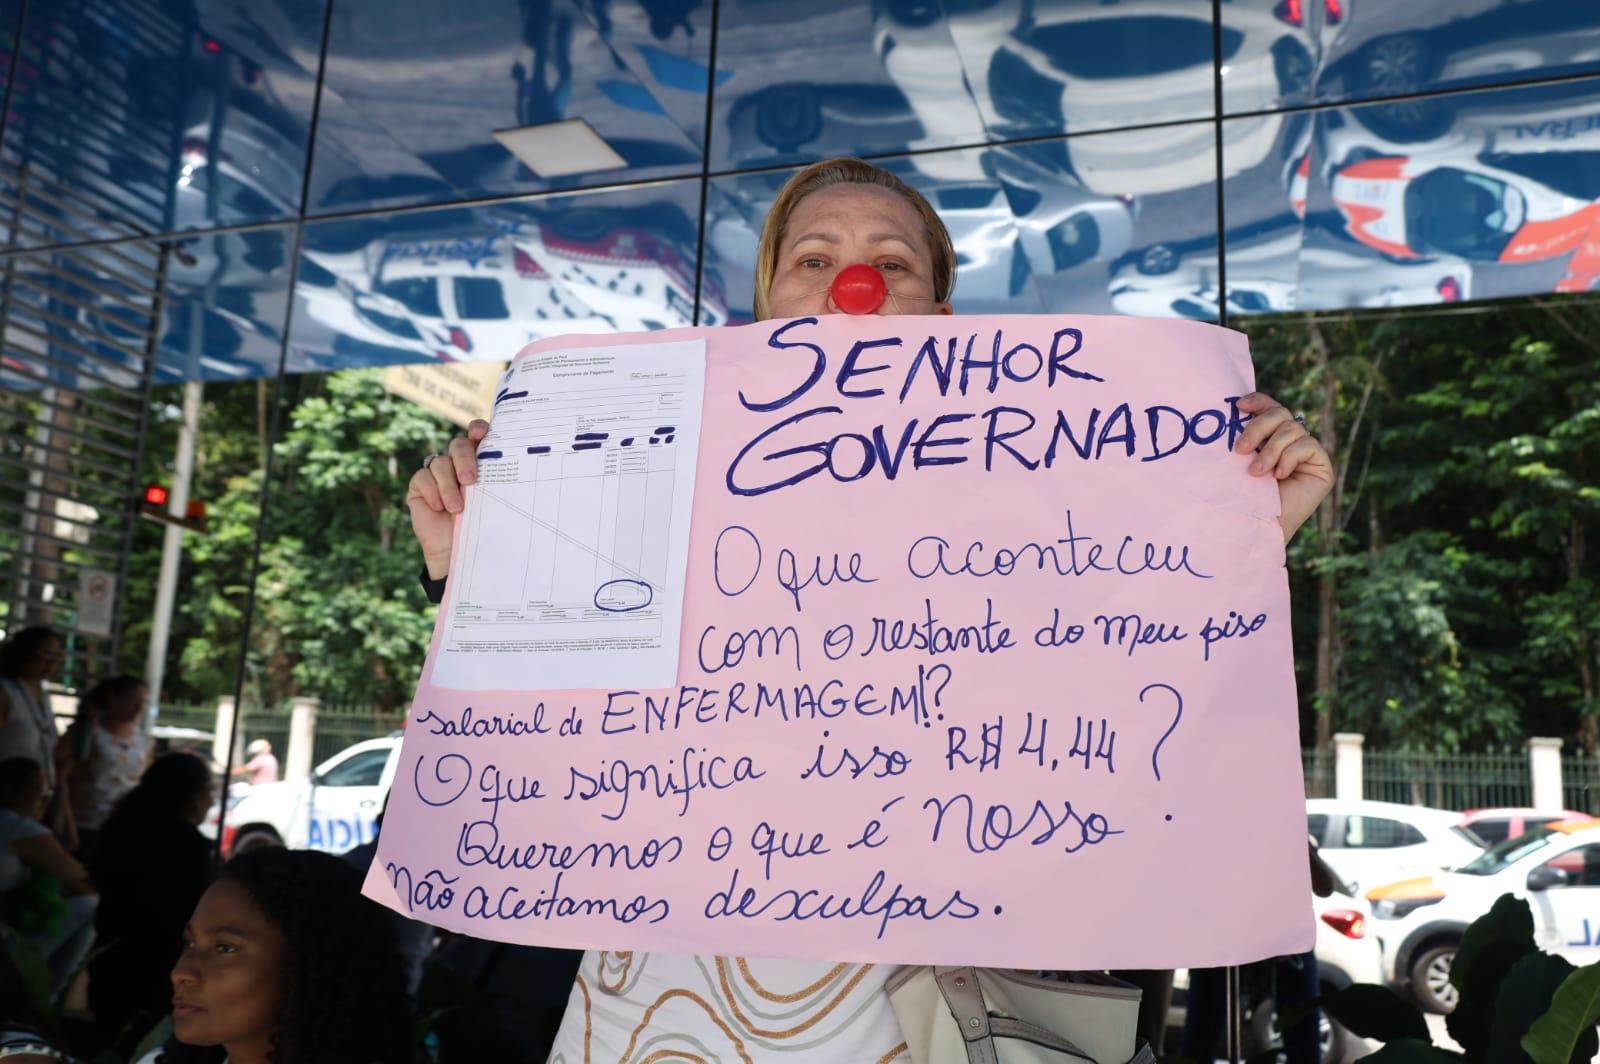 SENHOR
GOVERNADOR
O que aconteceu
com o restante do meu piso
salarial de ENFERMAGEM!?
O que significa isso R$ 4,44 ?
Queremos o que é Nosso .
Não aceitamos desculpas.
Comprovante de Pagamento